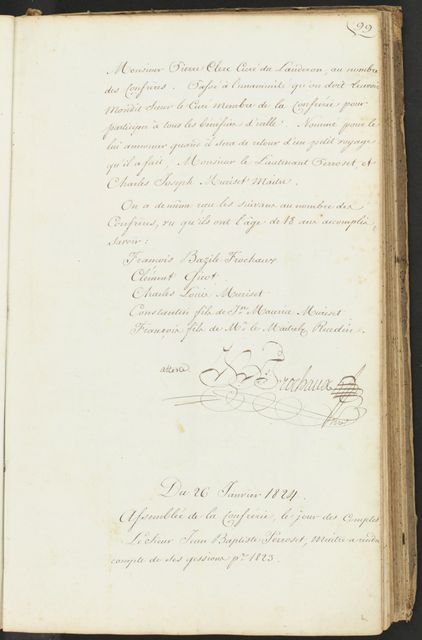 99
Monsieur Pierre Clerc Curé du Landeron, au nombre
des Confrères. Passé à l'unanimité qu'on doit
Mondit Sieur le Curé membre de la Confrérie, pour
participer à tous les bénéfices d'icelle: Nommé pour le
lui annoncer quand il sera de retour d'un petit voyage
qu'il a fait, Monsieur le Lieutenant Perroset et
Charles Joseph Muriset Maitre.
On a de même reçu les suivans au nombre des
Confrères, vu qu'ils ont l'âge de 18 ans accomplis,
Savoir:
François Bazile Frochaux
Clément Gicot
Charles Louis Muriset
Constantin fils de Maurice Muriset
François fils de Mr. le Ruedin.
atteste
Frochaux
Du 26 Janvier 1824.
Assemblée de la Confrérie, le jour des Comptes
Jean Baptiste Perroset, Maitre a rendu
compte de des gessions pr. 1823.